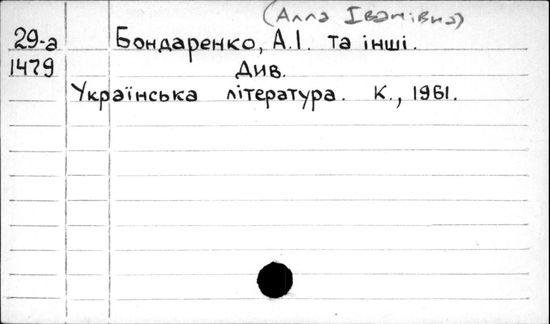 (Алла Іванівна)
29-а Бондаренко, А.І. та інші.
1479 Див.
Українська література. К., 1961.